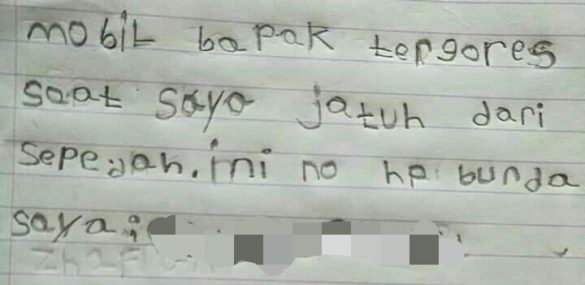 mobil bapak tergores
saat saya jatuh dari
sepedah. ini no hp bunda
saya :